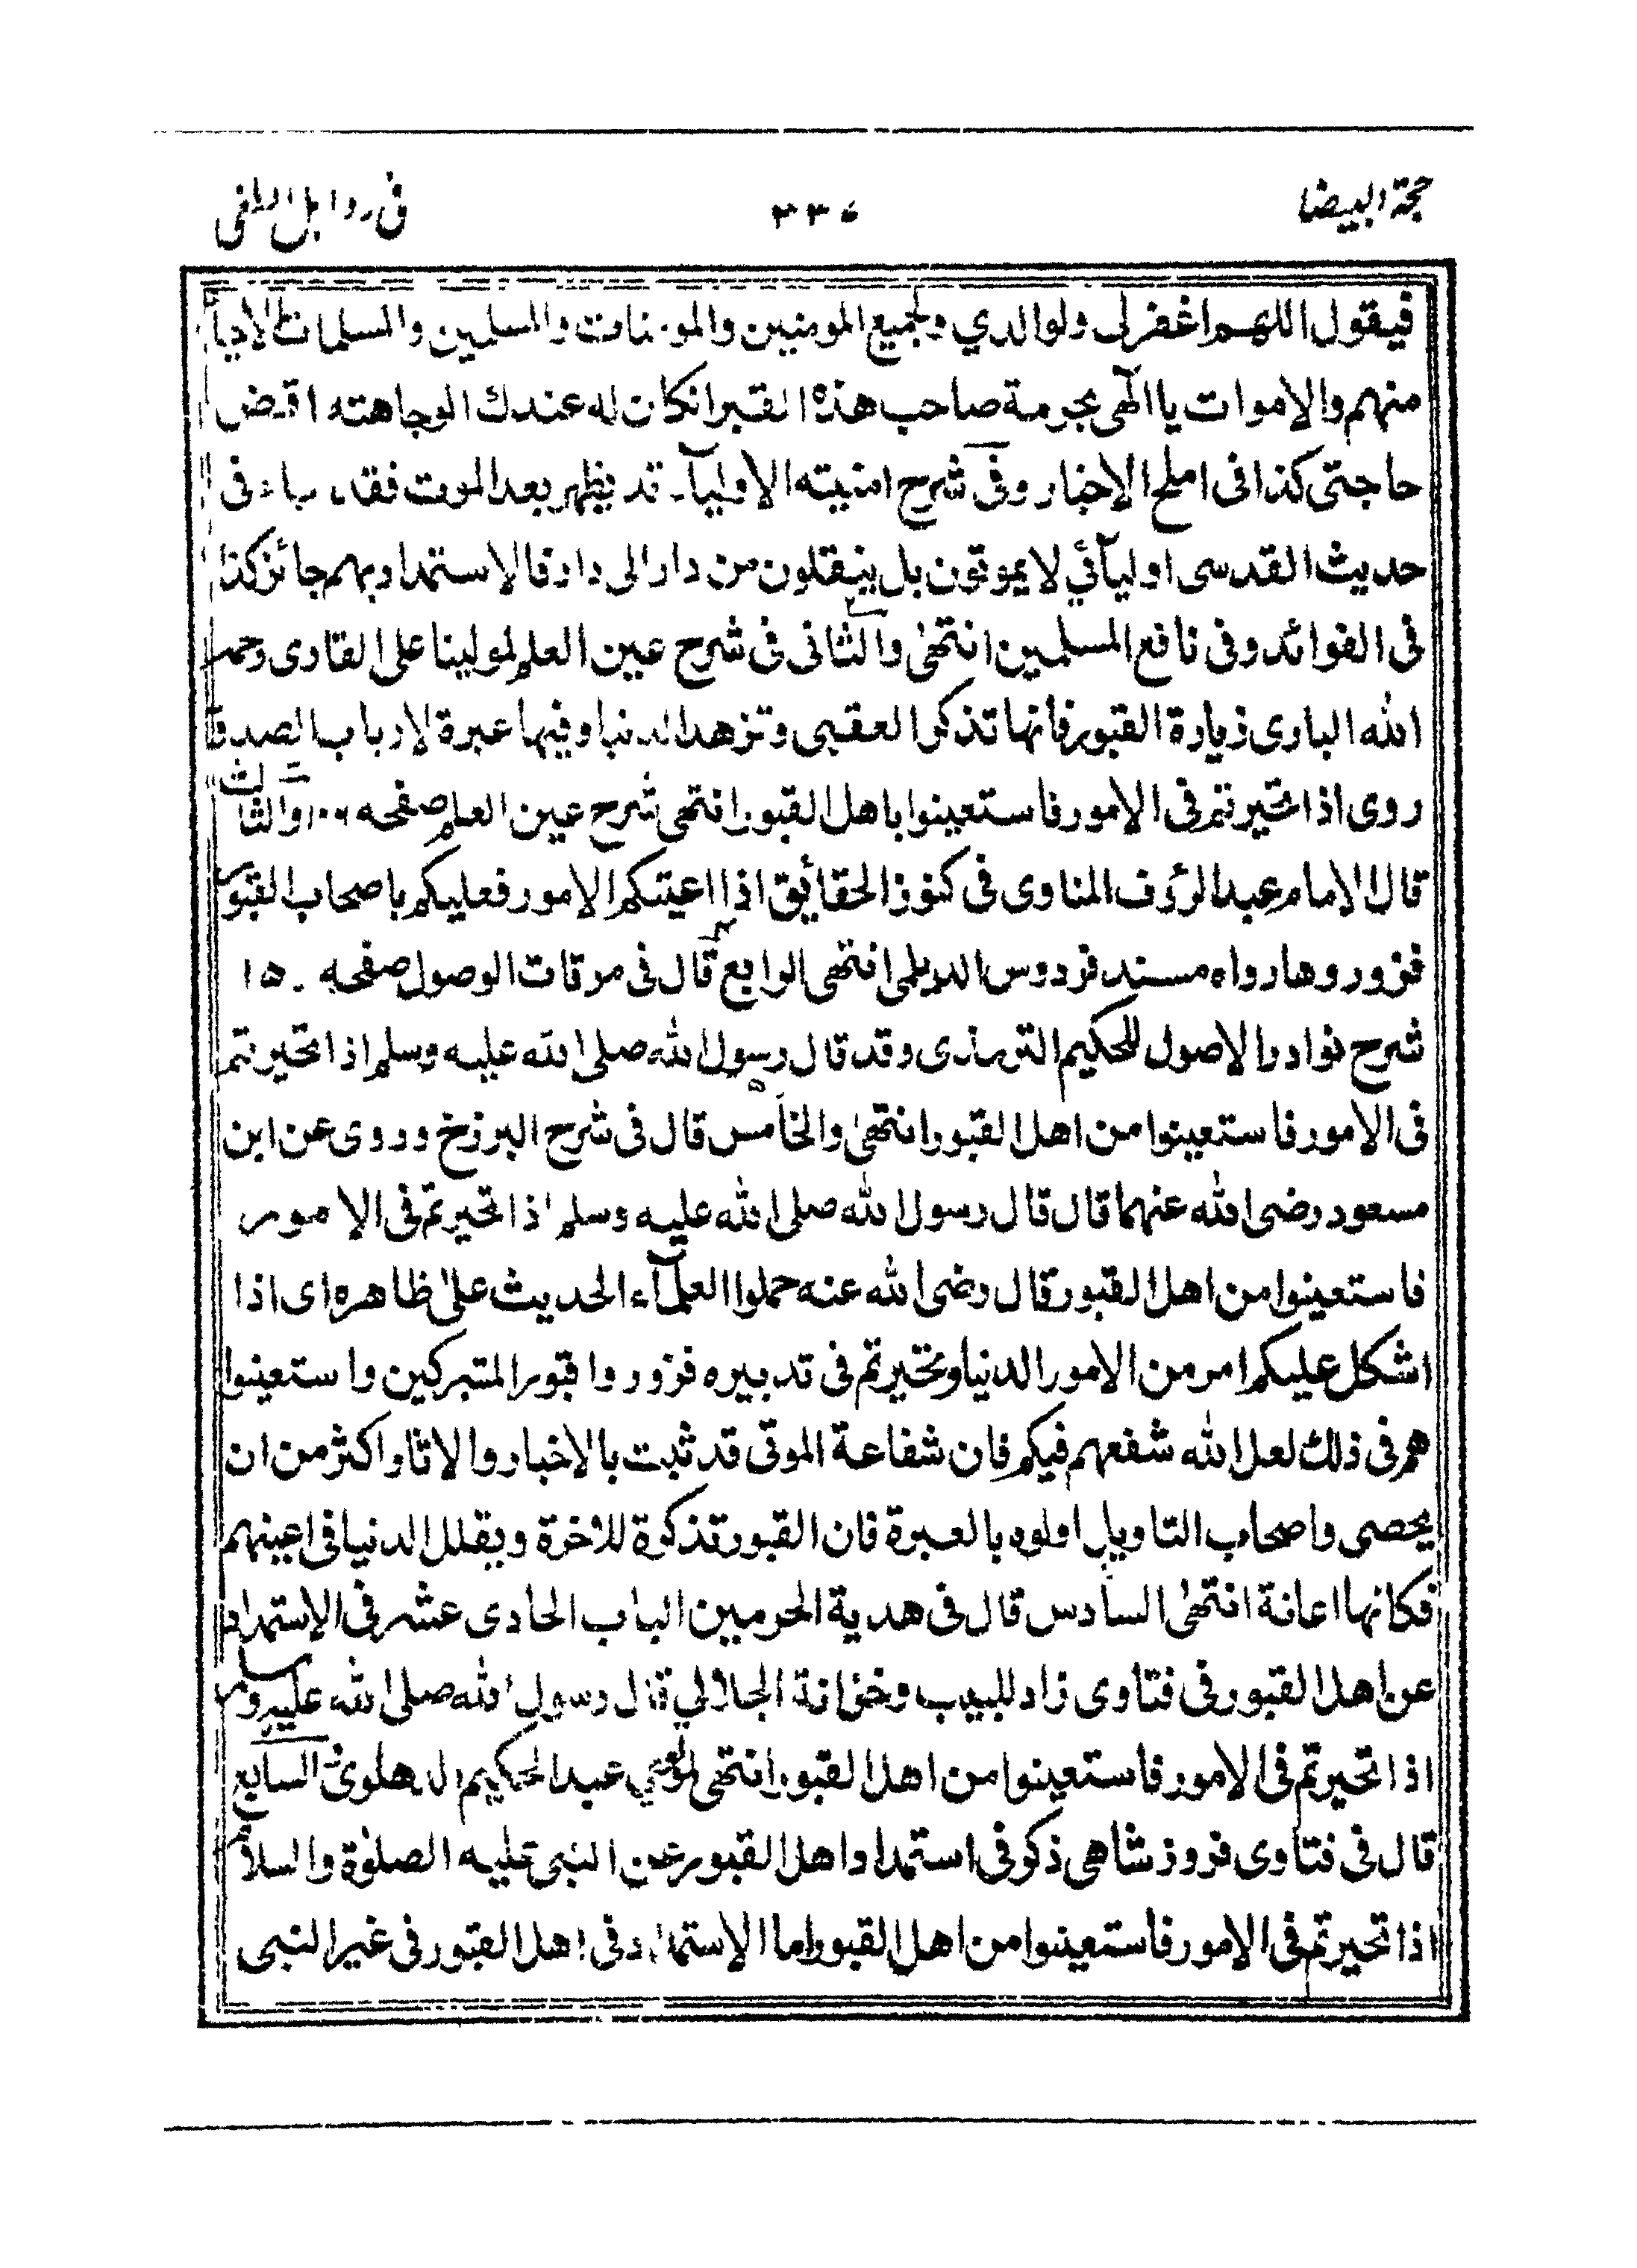 حجة البيضا ٣٣٤ فى
فيقول اللهم اغفرلى ولوالدي ولجميع المومنين والمومنات والمسلمين والمسلمات الاحيأ
منهم والاموات يا الٓهى بحرمة صاحب هذه القبر انكان له عندك الوجاهته اقض
حاجتى كذا فى املح الاخبار وفى شرح امنيته الاوليآء قد يظهر بعد الموت فقد جاء فى
حديث القدسى اوليآئي لا يموتون بل ينقلون من دار الى دار فالاستمداد بهم جائز كذا
فى الفوائد وفى نافع المسلمين انتهىٰ والثانى فى شرح عين العلم لمولينا على القارى رحمه
الله البارى زيارة القبور فانها تذكر العقبى وتزهد الدنيا وفيها عبرة لارباب الصدق
روى اذا تحيرتم فى الامور فاستعينوا باهل القبور انتهى شرح عين العلم صفحه ١٠٦ والثالث
قال الامام عبد الرؤف المناوى فى كنوز الحقائق اذا اعيتكم الامور فعليكم باصحاب القبور
فزوروها رواه مسند فردوس الديلمى انتهى الرابع قال فى مرقات الوصول صفحه ١٥٠
شرح نوادر الاصول للحكيم الترمذى وقد قال رسول الله صلى الله عليه وسلم اذا تحيرتم
فى الامور فاستعينوا من اهل القبور انتهىٰ والخامس قال فى شرح البرزخ وروى عن ابن
مسعود رضى الله عنهما قال قال رسول الله صلى الله عليه وسلم اذا تحيرتم فى الامور
فاستعينوا من اهل القبور قال رضى الله عنه حملوا العلمآء الحديث علىٰ ظاهره اى اذا
اشكل عليكم امر من الامور الدنيا وتحيرتم فى تدبيره فزوروا قبور المتبركين واستعينوا
هم فى ذلك لعل الله شفعهم فيكم فان شفاعة الموتى قد ثبت بالاخبار والاثار اكثر من ان
يحصى واصحاب التاويل اولوه بالعبرة فان القبور تذكرة للاخرة ويقلل الدنيا فى اعينهم
فكانها اعانة انتهىٰ السادس قال فى هدية الحرمين الباب الحادى عشر فى الاستمداد
عن اهل القبور فى فتاوى زاد للبيب وخزانة الجلالي قال رسول الله صلى الله عليه وسلم
اذا تحيرتم فى الامور فاستعينوا من اهل القبور انتهى عبد الحكيم الدهلوى السابع
قال فى فتاوى فروز شاهى ذكر فى استمداد اهل القبور عن النبى عليه الصلوٰة والسلام
اذا تحيرتم فى الامور فاستعينوا من اهل القبور اما الاستمداد فى اهل القبور فى غير النبى